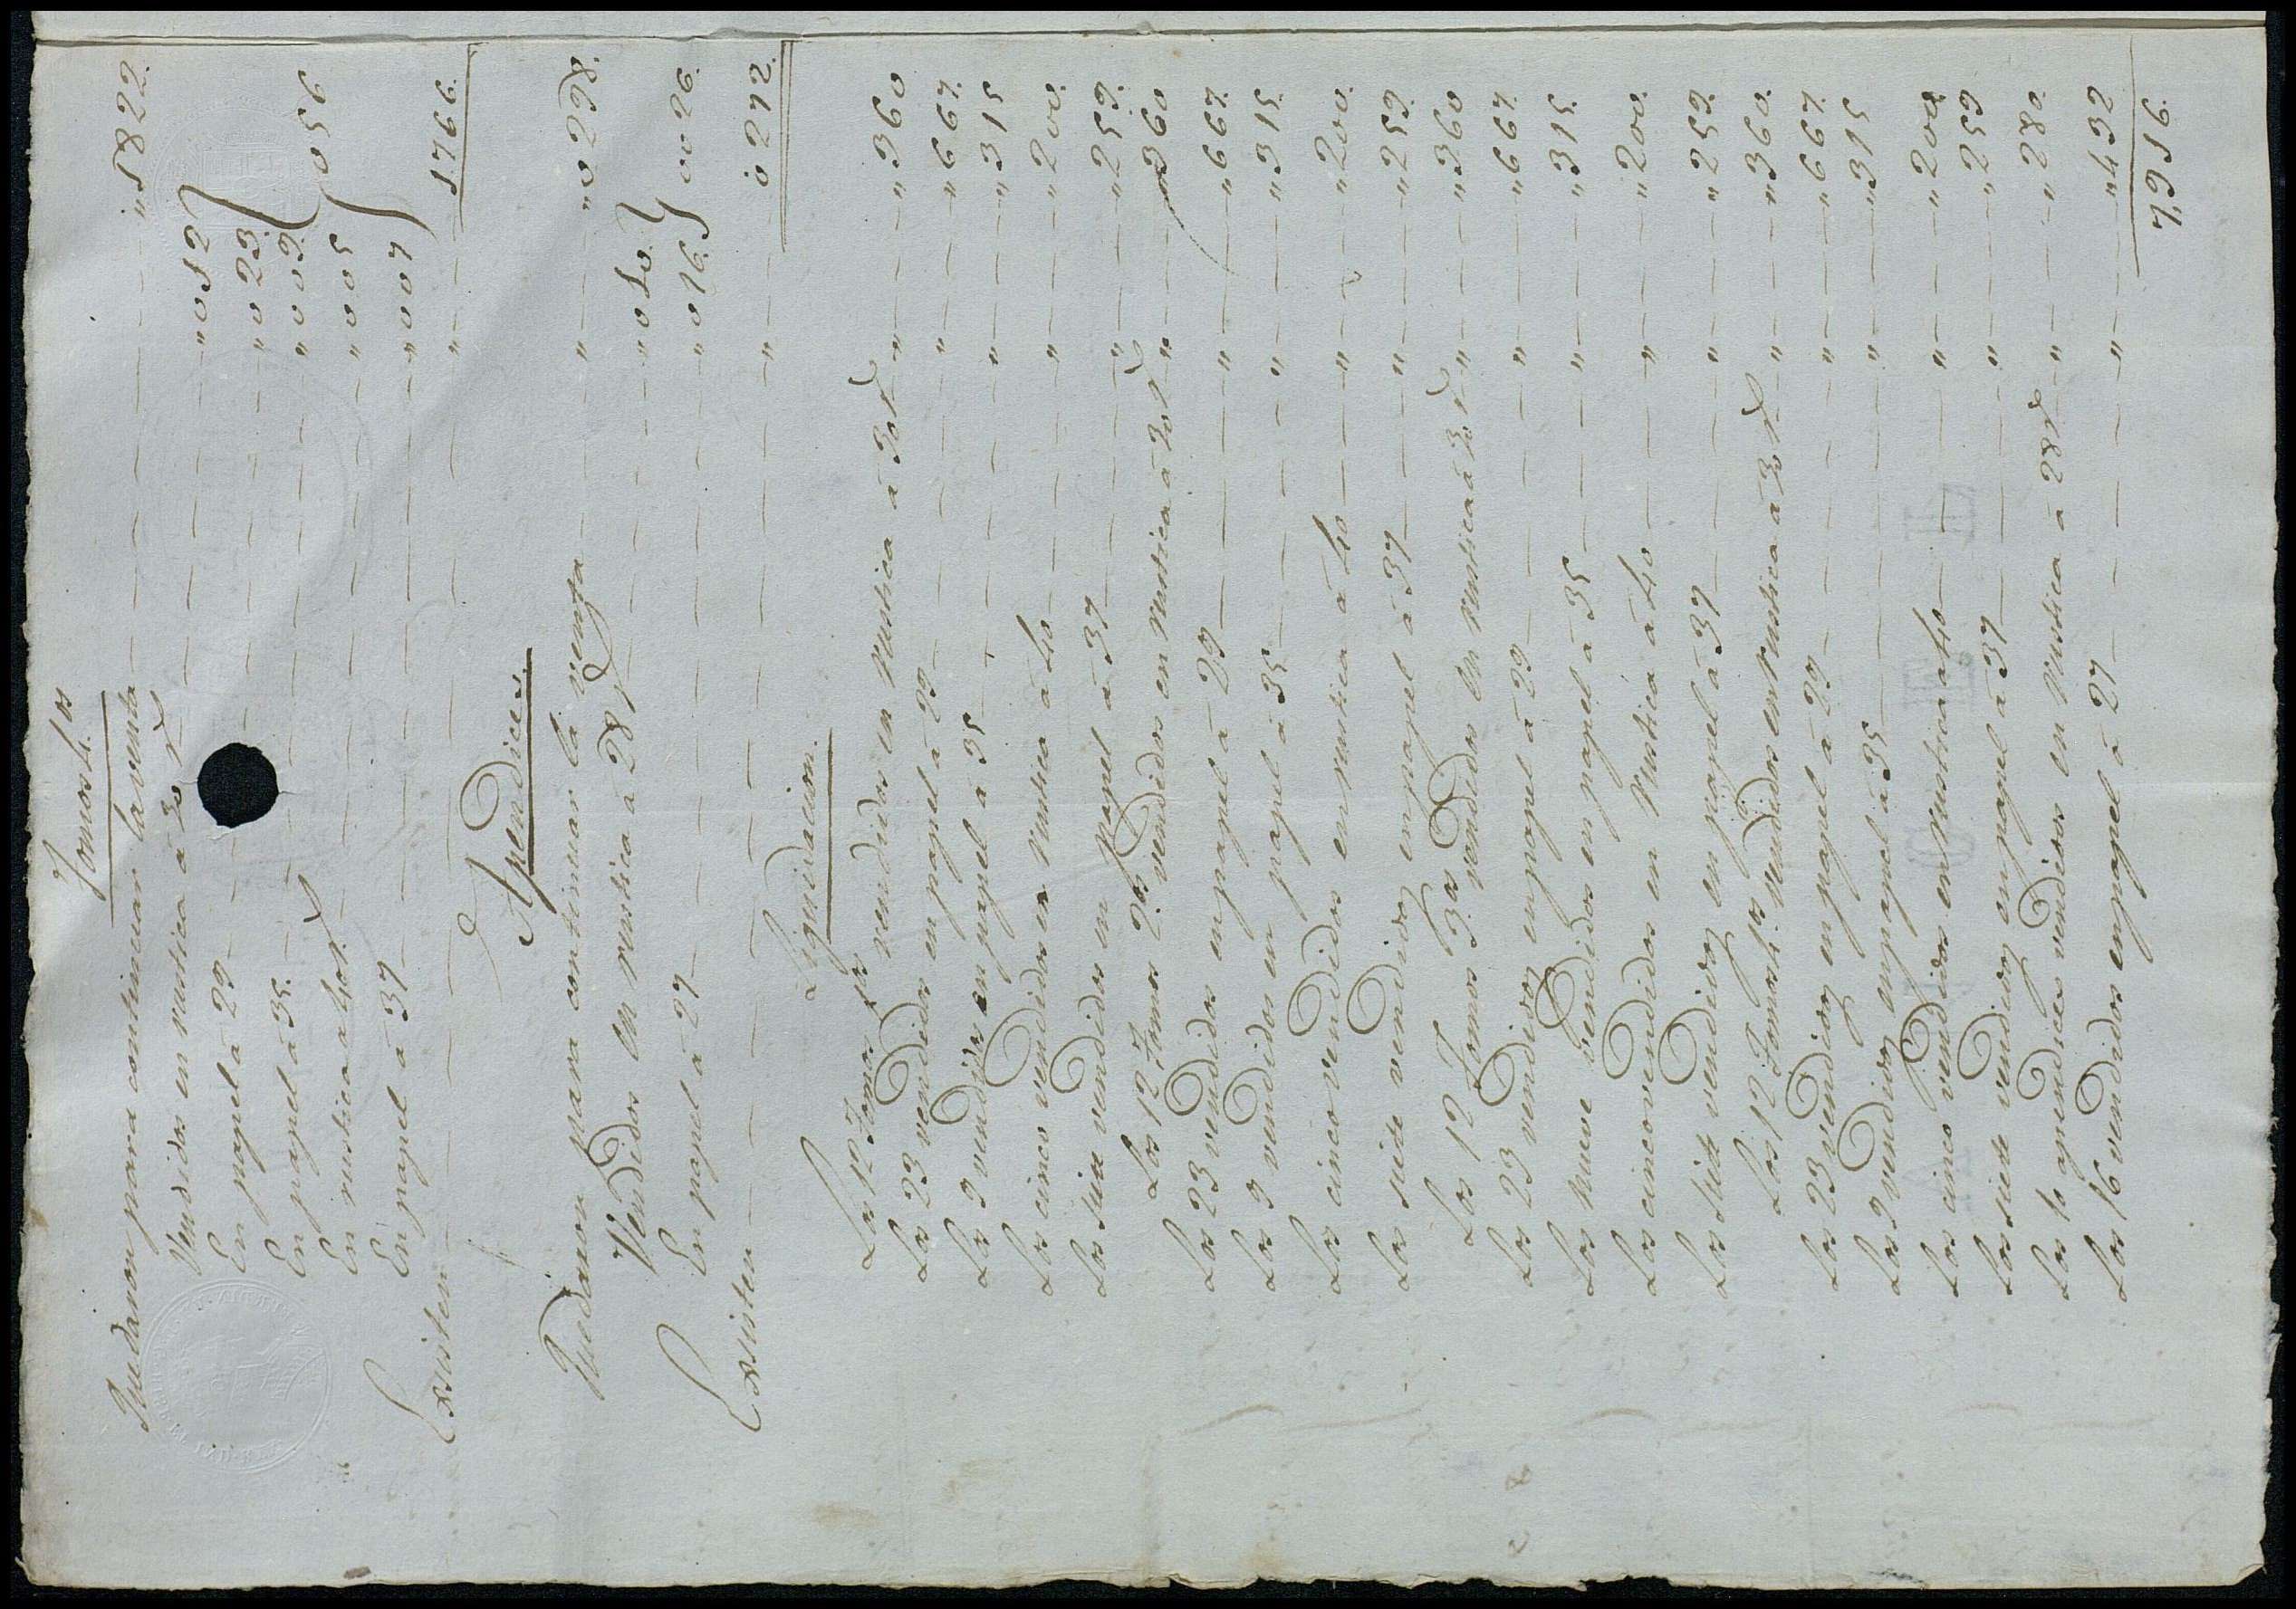 Tomos 4.os
Quedaron para continuar la venta " 1822.
Vendidos en rustica a 30 r.s " 012
En papel a 29 " 023.
En papel a 35. " 009. } 056
En rustica a 40 r.s " 005
En papel a 37 " 007
Existen " 1766.
Apendices.
Quedaron para continuar la venta " " 0298.
Vendidos en rustica a 28 r.s " 010. } 0026.
En papel a 27 " 016.
Existen " 0272.
Liquidacion.
Los 12 Tomos 1.os vendidos en rustica a 30 r.s " " 360
Los 23 vendidos en papel a 29 " " 667.
Los 9 vendidos en papel a 35 " " 315
Los cinco vendidos en rustica a 40 " " 200.
Los siete vendidos en papel a 37 " " 259.
Los 12 Tomos 2.os vendidos en rustica a 30 r.s " " 360
Los 23 vendidos en papel a 29 " " 667.
Los 9 vendidos en papel a 35 " " 315.
Los cinco vendidos en rustica a 40 " " 200.
Los siete vendidos en papel a 37 " " 259.
Los 12 Tomos 3.os vendidos en rustica a 30 r.s " " 360
Los 23 vendidos en papel a 29 " " 667.
Los nueve vendidos en papel a 35 " " 315.
Los cinco vendidos en rustica a 40 " " 200.
Los siete vendidos en papel a 37 " " 259.
Los 12 Tomos 4.os vendidos en rustica a 30 r.s " " 360.
Los 23 vendidos en papel a 29 " " 667.
Los 9 vendidos en papel a 35 " " 315
Los cinco vendidos en rustica a 40 " " 200
Los siete vendidos en papel a 37 " " 259
Los 10 apendices vendidos en rustica a 28 r.s " " 280.
Los 16 vendidos en papel a 27 " " 432
7,916.